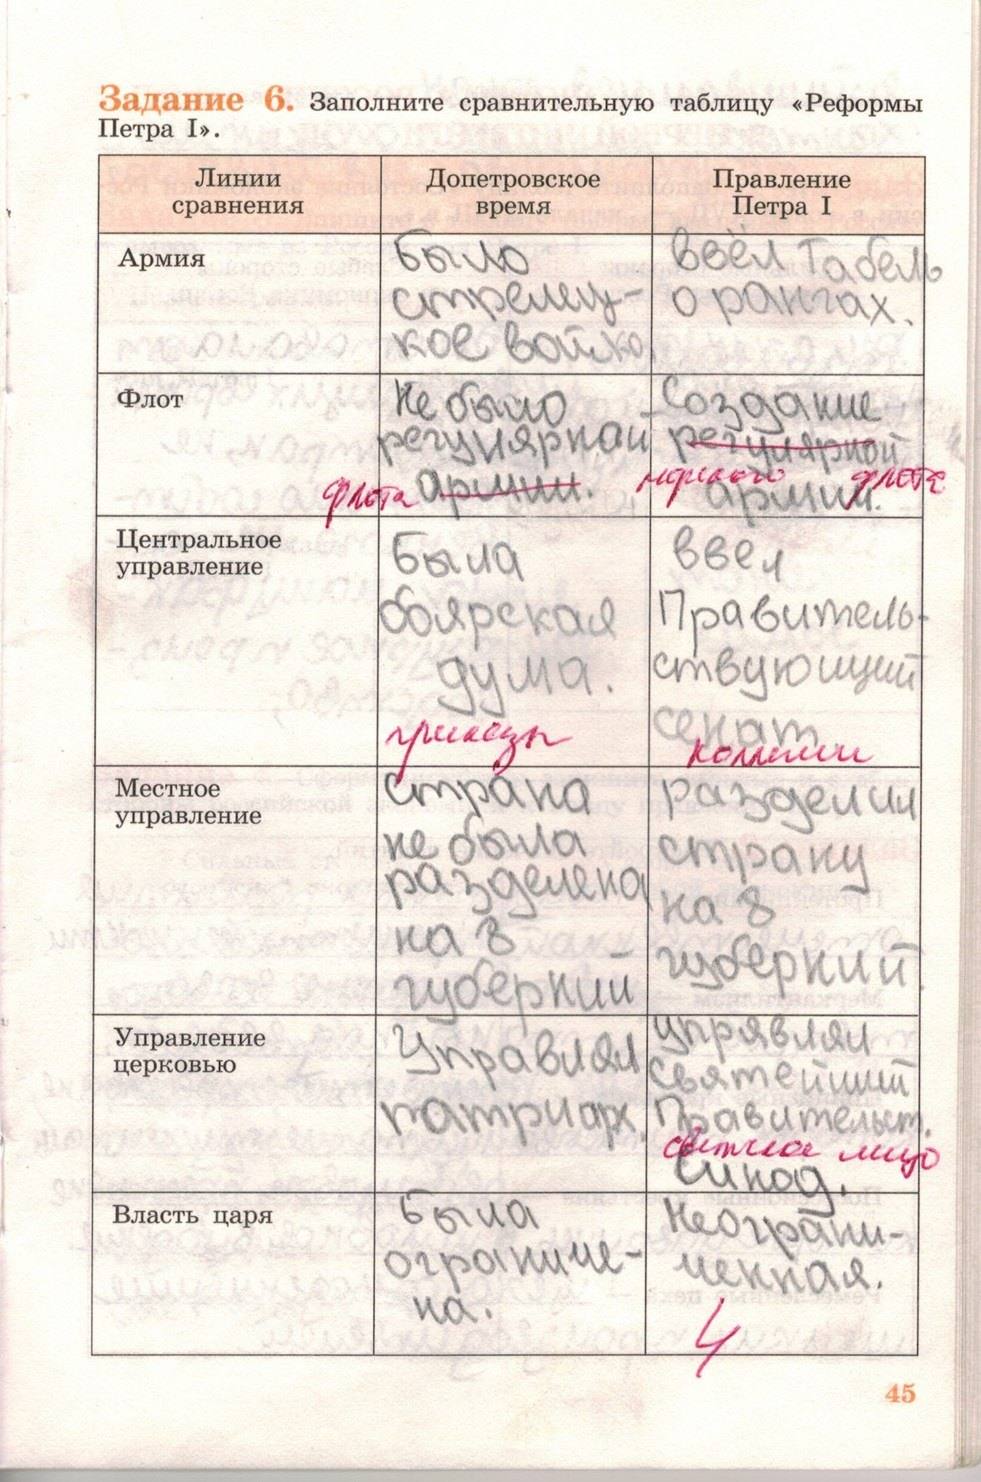 Задание 6. Заполните сравнительную таблицу «Реформы
Петра I».
Линии
сравнения
Допетровское
время
Правление
Петра I
Армия
Было
стрелец-
кое войско
ввёл Табель
о рангах.
Флот
Не было
регулярной
флота армии.
-Создание
регулярной
морского флота
армии.
Центральное
управление
Была
боярская
дума.
приказы
ввел
Правитель-
ствующий
сенат
коллегии
Местное
управление
страна
не была
разделена
на 8
губерний
разделил
страну
на 8
губерний.
Управление
церковью
Управлял
патриарх.
упрявлял
святейший
Правительст.
светское лицо
синод.
Власть царя
Была
ограниче-
на.
Неограни-
ченная.
4
45